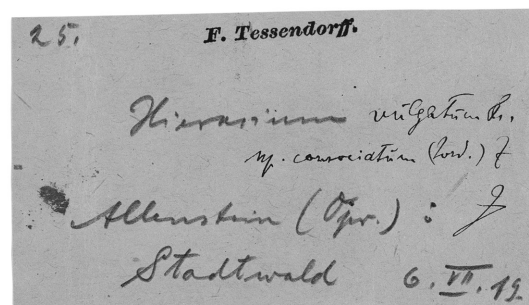 25.
F. Tessendorff.
Hieracium vulgatum Fr.
sp. consociatum (Jord.) Z
Allenstein (Opr.) : Z
Stadtwald 6. VII. 19